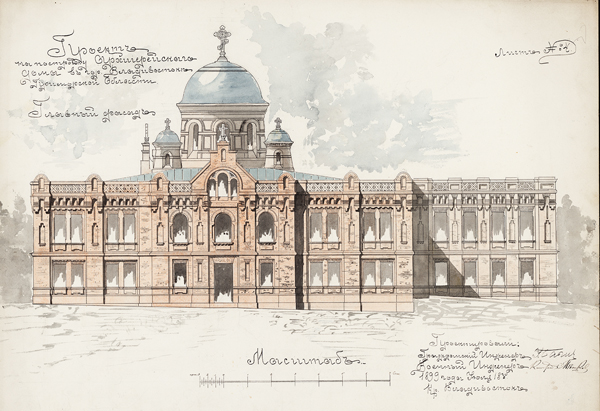 Проектъ
на постройку Архіерейскаго
дома въ гор. Владивостокѣ
Приморской Области.
Листъ №
Главный фасадъ
Масштабъ
Проектировали:
Гражданскій Инженеръ
Военный Инженеръ
1899 года
гор. Владивостокъ